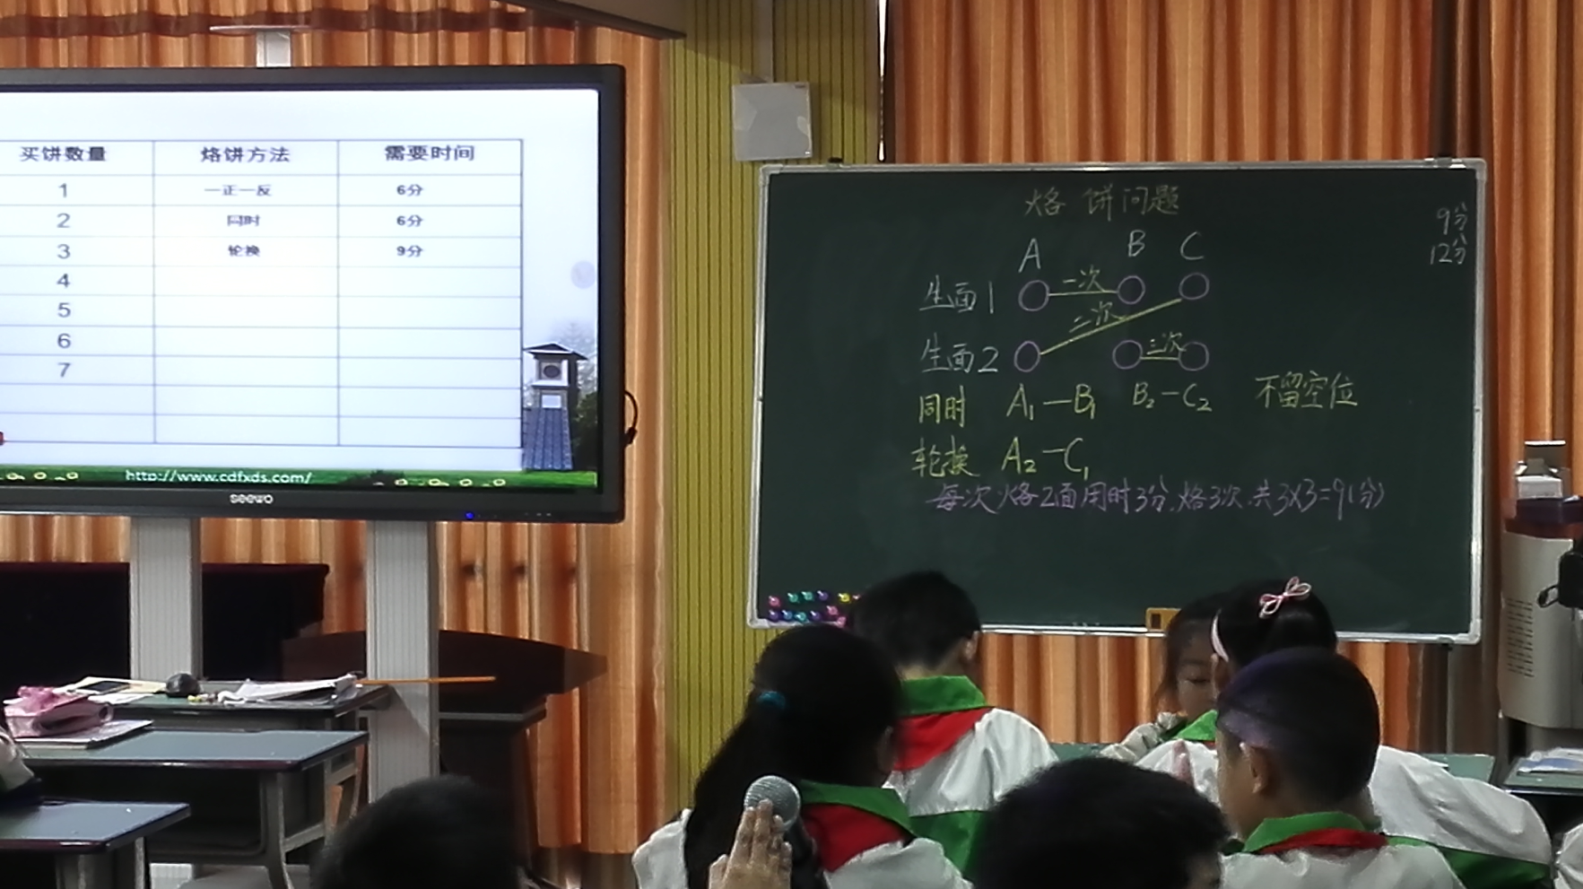 买饼数量 烙饼方法 需要时间
1 一正一反 6分
2 同时 6分
3 轮换 9分
4
5
6
7
http://www.cdfxds.com/
seewo
烙饼问题
9分
12分
A B C
生面1 一次
二次
生面2 三次
同时 A₁—B₁ B₂—C₂ 不留空位
轮换 A₂—C₁
每次烙2面用时3分,烙3次.共3×3=9(分)